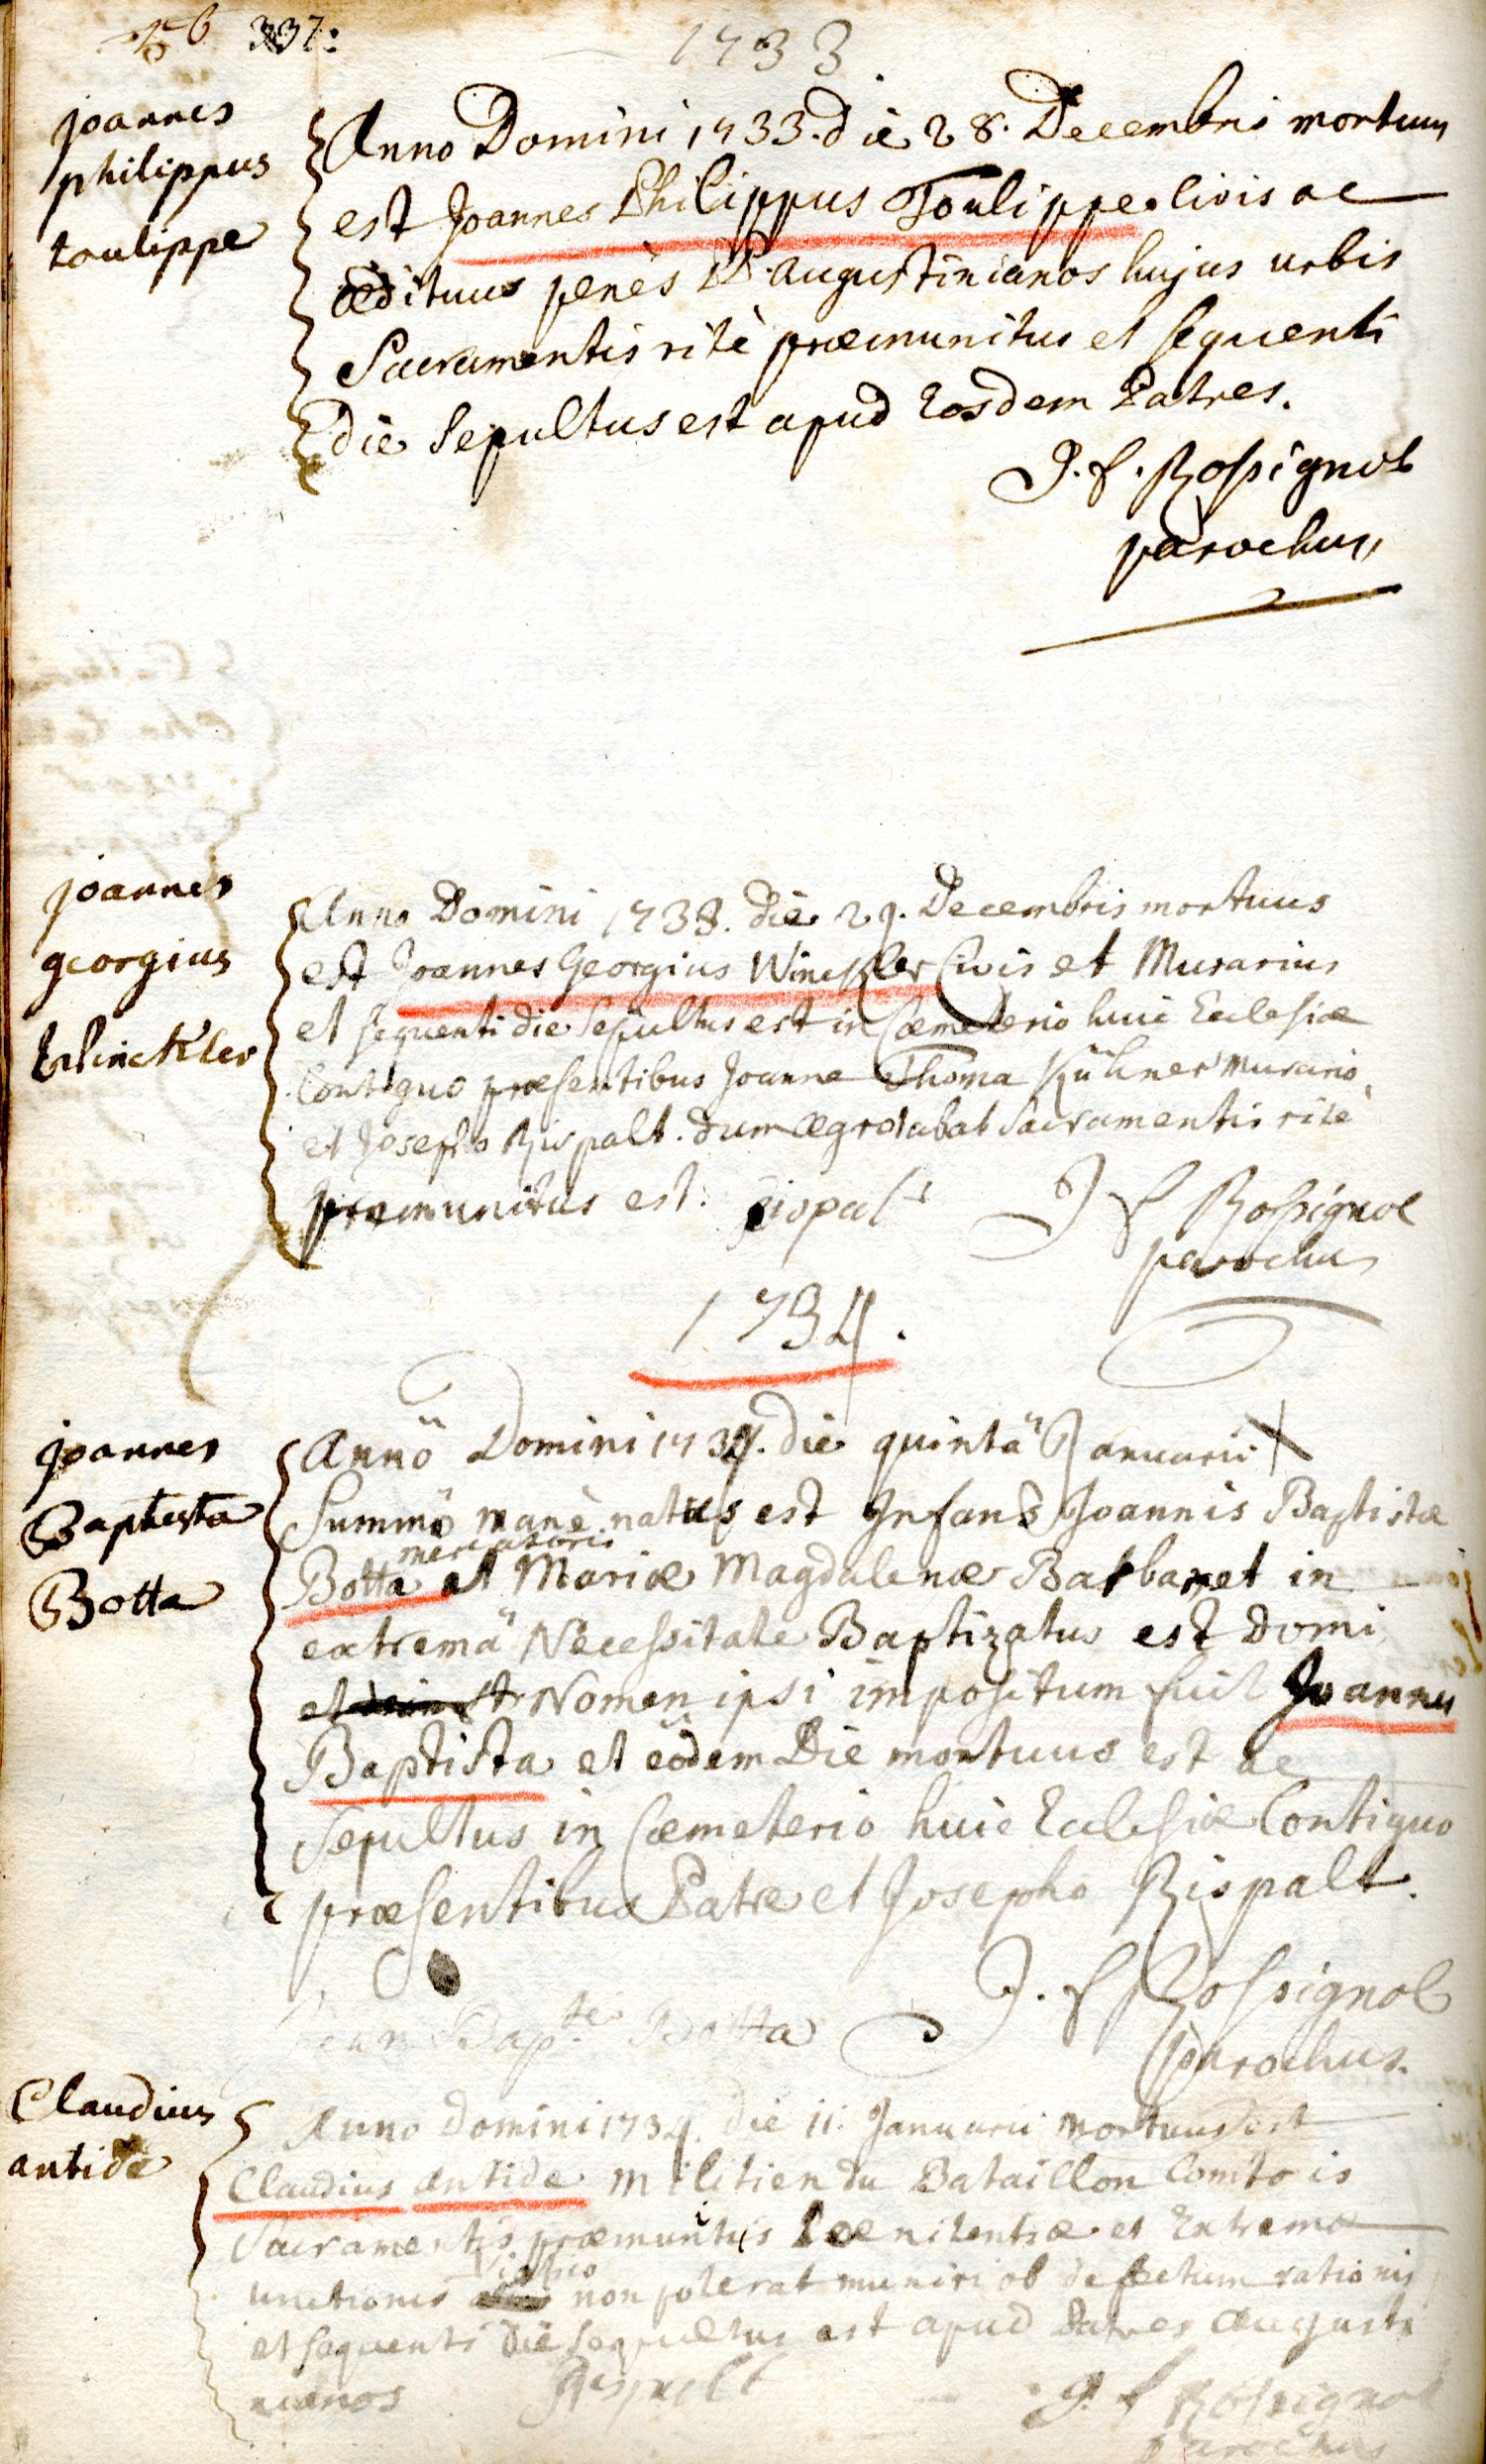 337:
1733
joannes
philippus
toulippe
Anno Domini 1733. die 28. Decembris mortuus
est Joannes Philippus Toulippe Civis ac
ædituus penès PP. augustinianos hujus urbis
Sacramentis ritè præmunitus et sequenti
die sepultus est apud Eosdem Patres.
J. f. Rossignol
parochus
joannes
georgius
Winckler
Anno Domini 1733. die 29. Decembris mortuus
est Joannes Georgius Winckler Civis et Murarius
et sequenti die sepultus est in Cæmeterio huic Ecclesiæ
Contiguo præsentibus Joanne Thoma Kühner murario
et Josepho Rispalt. dum ægrotabat Sacramentis ritè
præmunitus est. Rispalt J f Rossignol
parochus
1734.
joannes
Baptista
Botta
Annö Domini 1734. die quintâ Januarii
Summö manè natus est Infans Joannis Baptistæ
mercatoris
Botta et Mariæ Magdalenæ Barbaret in
extremâ Necessitate Baptizatus est Domi
et Nomen ipsi impositum fuit Joannes
Baptista et eödem Die mortuus est ac
sepultus in Cæmeterio huic Ecclesiæ Contiguo
præsentibus Patre et Josepho Rispalt.
Jean Bapte Botta J. f Rossignol
parochus.
Claudius
antide
Anno Domini 1734. die 11. Januarii mortuus est
Claudius antide Militien du Bataillon Comtois
Sacramentis præmunitus Pœnitentiæ et Extremæ
Viatico
unctionis non poterat muniri ob defectum rationis
et sequenti die sepultus est apud Patres Augusti
nianos Rispalt J. f Rossignol
parochus